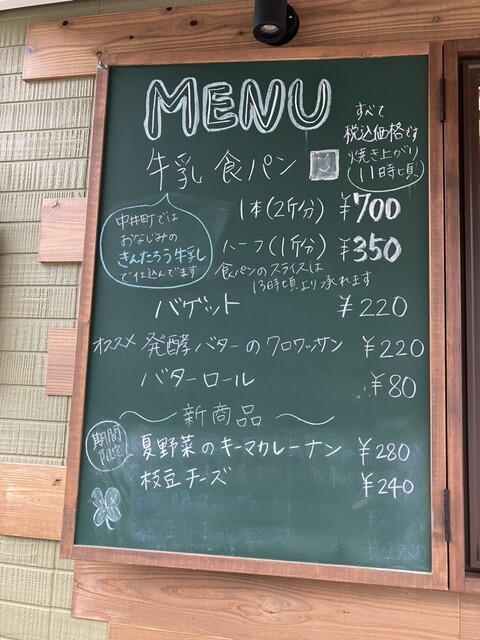 MENU
すべて
税込価格です
焼き上がり
11時頃
牛乳 食パン
1本(2斤分) ¥700
ハーフ(1斤分) ¥350
中井町では
おなじみの
きんたろう牛乳
で仕込んでます
食パンのスライスは
13時頃より承れます
バゲット ¥220
オススメ 発酵バターのクロワッサン ¥220
バターロール ¥80
〜新商品〜
期間
限定
夏野菜のキーマカレーナン ¥280
枝豆チーズ ¥240